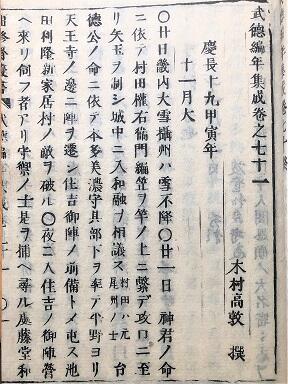 武徳編年集成巻之七十一
木村高敦 撰
慶長十九甲寅年
十一月大
〇廿日畿内大雪攝州ハ雪不降〇廿一日神君ノ命
ニ依テ村田權右衞門編笠ヲ竿ノ上ニ繫デ攻口ニ至
リ矢玉ヲ制シ城中ニ入和融ヲ相議ス村田ハ元尾州ノ士台
德公ノ命ニ依テ本多美濃守具部下ヲ率テ平野ヨリ
天王寺ノ邊ニ陣ヲ遷シ住吉御陣ノ前備トメ屯ス池
田利隆新家居村ノ敵ヲ破ル〇夜二人住吉ノ御陣營
ヘ來リ伺フ者アリ守禦ノ士是ヲ捕ヘ尋ル處藤堂和